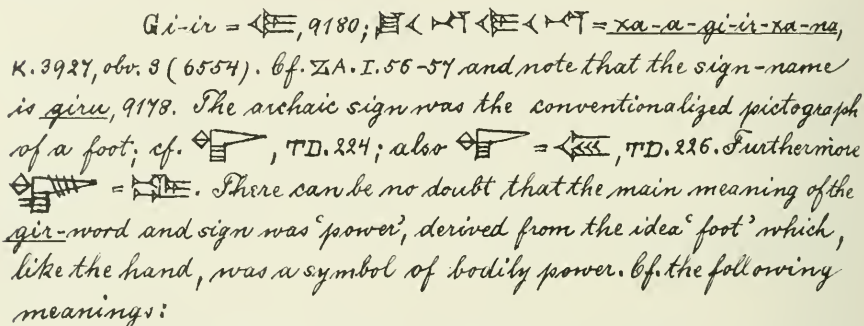 Gi-ir = , 9180; = xa-a-gi-ir-xa-na,
K.3927, obv. 3 (6554). Cf. ZA. I. 56-57 and note that the sign-name
is giru, 9178. The archaic sign was the conventionalized pictograph
of a foot; cf. , TD. 224; also = , TD. 226. Furthermore
= . There can be no doubt that the main meaning of the
gir-word and sign was 'power', derived from the idea 'foot' which,
like the hand, was a symbol of bodily power. Cf. the following
meanings: